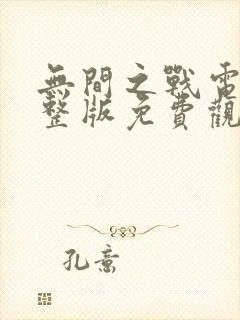 無間之戰電
整版免費觀
孔意